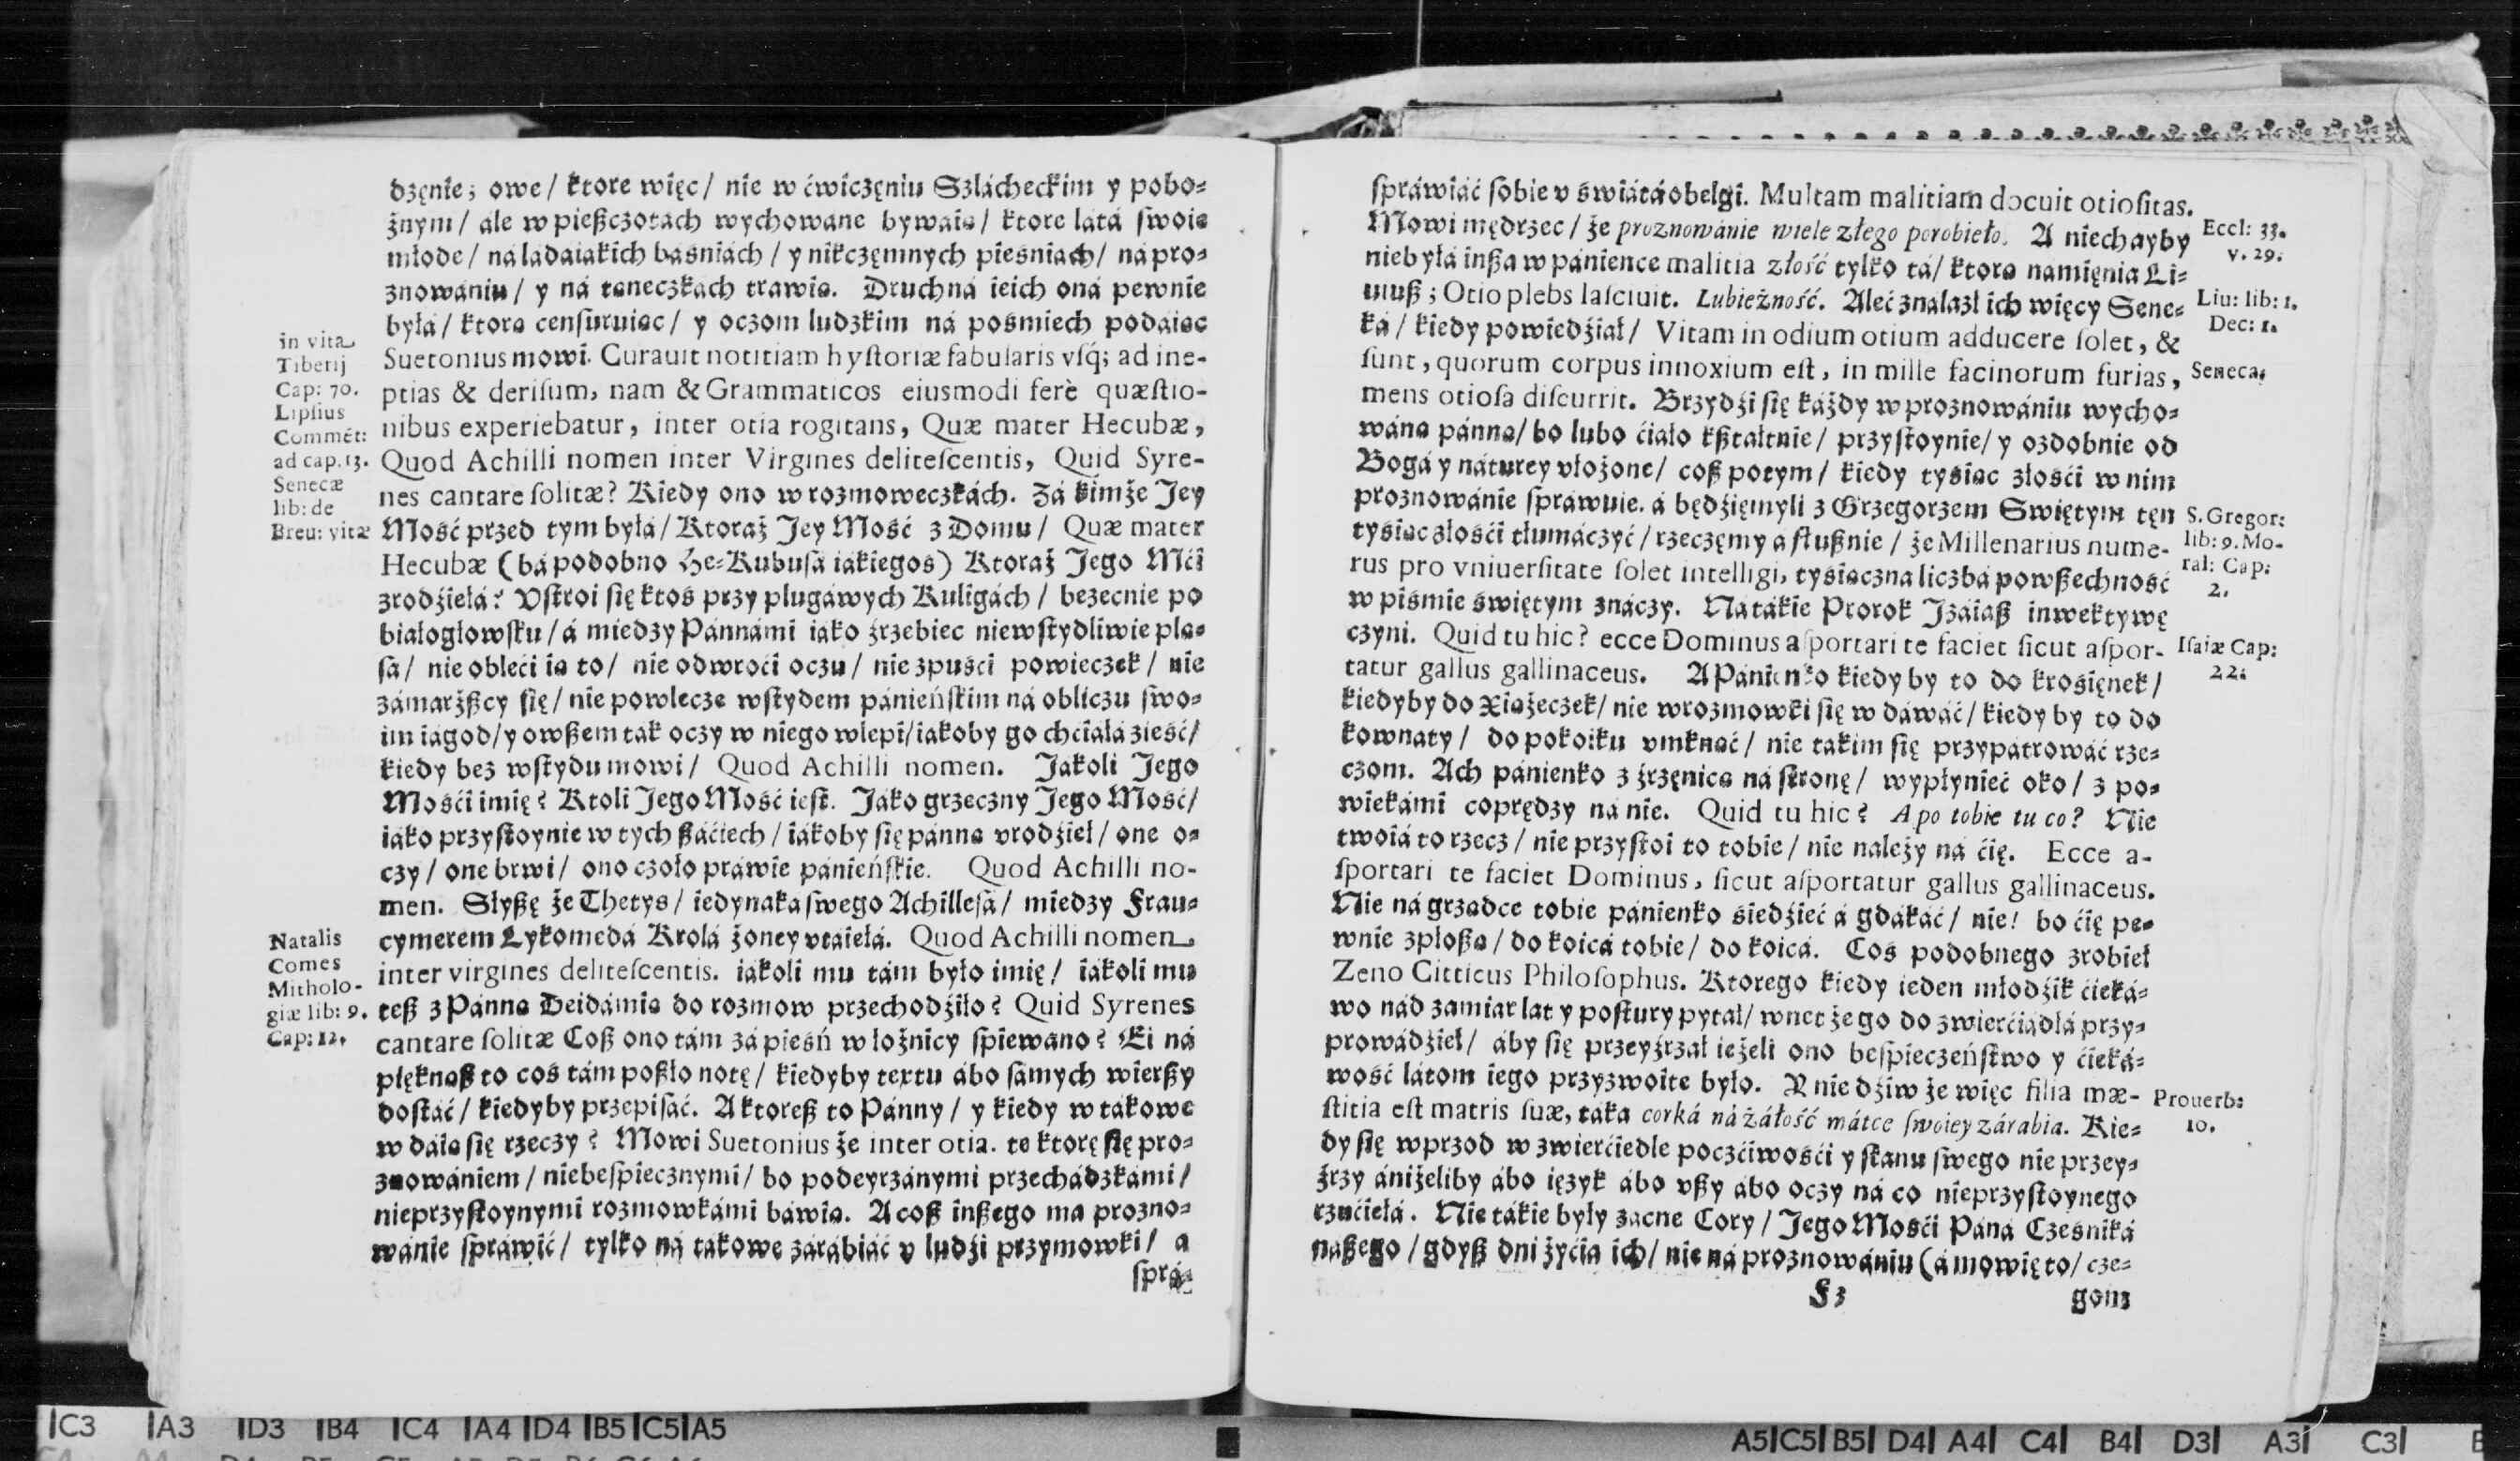 dzęnie; owe/ ktore więc/ nie w ćwiczęniu Szlácheckim y pobo⸗
żnym/ ále w pießczotách wychowáne bywáią/ ktore látá ſwoie
młode/ ná ládáiákich báśniách/ y nikczęmnych pieśniách/ ná pro⸗
znowániu/ y ná táneczkách trawią. Druchná ieich oná pewnie
byłá/ ktorą cenſuruiąc/ y oczom ludzkim ná pośmiech podáiąc
Suetonius mowi. Curauit notitiam hyſtoriæ fabularis vſq́; ad ine-
ptias & deriſum, nam & Grammaticos eiusmodi ferè quæſtio-
nibus experiebatur, inter otia rogitans, Quæ mater Hecubæ,
Quod Achilli nomen inter Virgines deliteſcentis, Quid Syre-
nes cantare ſolitæ? Kiedy ono w rozmoweczkách. Zá kimże Jey
Mość przed tym byłá/ Ktoraż Jey Mość z Domu/ Quæ mater
Hecubæ (bá podobno He⸗Kubuſá iákiegoś) Ktoraż Jego Mći
zrodźiełá? Vſtroi się ktoś przy plugáwych Kuligách/ bezecnie po
białogłowſku/ á miedzy Pánnámi iáko źrzebiec niewſtydliwie plą⸗
ſa/ nie obleći ią to/ nie odwroći oczu/ nie zpuśći powieczek/ nie
zámarżßcy się/ nie powlecze wſtydem pánieńſkim ná obliczu ſwo⸗
im iágod/ y owßem ták oczy w niego wlepi/ iákoby go chciáłá zieść/
kiedy bez wſtydu mowi/ Quod Achilli nomen. Jákoli Jego
Mośći imię? Ktoli Jego Mość ieſt. Jáko grzeczny Jego Mość/
iáko przyſtoynie w tych ßáćiech/ iákoby się pánną vrodźieł/ one o⸗
czy/ one brwi/ ono czoło práwie pánieńſkie. Quod Achilli no-
men. Słyßę że Thetys/ iedynaká ſwego Achilleſá/ miedzy Frau⸗
cymerem Lykomedá Krolá żoney vtáiełá. Quod Achilli nomen
inter virgines deliteſcentis. iákoli mu tám było imię! iákoli mu
teß z Pánną Deidámią do rozmow przechodźiło? Quid Syrenes
cantare ſolitæ Coß ono tám zá pieśń w łożnicy śpiewano? Ei ná
pięknąß to coś tám poßło notę/ kiedyby textu ábo ſámych wierßy
doſtáć/ kiedyby przepiſáć. A ktoreß to Pánny/ y kiedy w tákowe
wdáią się rzeczy? Mowi Suetonius że inter otia. te ktorę się pro⸗
znowániem/ niebeſpiecznymi/ bo podeyrzánymi przechádzkámi/
nieprzyſtoynymi rozmowkámi báwią. A coß inßego ma prozno⸗
wánie ſpráwić/ tylko ná tákowe zárábiáć v ludźi przymowki/ a
ſprá⸗
in vita
Tiberij
Cap: 70.
Lipſius
Commēt:
ad cap. 13.
Senecæ
lib: de
Breu: vitæ
Natalis
Comes
Mitholo-
giæ lib: 9.
Cap: 12.
ſpráwiáć ſobie v świátá obelgi. Multam malitiam docuit otioſitas.
Mowi mędrzec/ że proznowánie wiele złego porobieło. A niechayby
niebyłá inßa w pánience malitia złość tylko tá/ ktorą námięnia Li⸗
uiuß; Otio plebs laſciuit. Lubieżność. Aleć znalazł ich więcy Sene⸗
ká/ kiedy powiedźiał/ Vitam in odium otium adducere ſolet, &
ſunt, quorum corpus innoxium eſt, in mille facinorum furias,
mens otioſa diſcurrit. Brzydźi się káżdy w proznowániu wycho⸗
wáną pánną/ bo lubo ćiáło kßtałtnie/ przyſtoynie/ y ozdobnie od
Bogá y nátury vłożone/ coß potym/ kiedy tyśiąc złośći w nim
proznowánie ſpráwuie. á będźięmyli z Grzegorzem Swiętym tęn
tyśiąc złośći tłumáczyć/ rzeczęmy a ſłußnie/ że Millenarius nume-
rus pro vniuerſitate ſolet intelligi, tyśiączna liczbá powßechność
w piśmie świętym znáczy. Ná tákie Prorok Jzáiaß inwektywę
czyni. Quid tu hic? ecce Dominus aſportari te faciet ſicut aſpor-
tatur gallus gallinaceus. A Pánienko kiedyby to do krośięnek/
kiedyby do Xiążeczek/ nie w rozmowki się wdáwáć/ kiedyby to do
kownaty/ do pokoiku vmknąć/ nie tákim się przypátrowáć rze⸗
czom. Ach pánienko z źrzęnicą ná ſtronę/ wypłynieć oko/ z po⸗
wiekámi coprędzy ná nie. Quid tu hic? A po tobie tu co? Nie
twoiá to rzecz/ nie przyſtoi to tobie/ nie należy ná ćię. Ecce a-
ſportari te faciet Dominus, ſicut aſportatur gallus gallinaceus.
Nie ná grządce tobie pánienko śiedźieć á gdákáć/ nie! bo ćię pe⸗
wnie zpłoßą/ do koicá tobie/ do koicá. Coś podobnego zrobieł
Zeno Citticus Philoſophus. Ktorego kiedy ieden młodźik ćieká⸗
wo nád zamiar lat y poſtury pytał/ wnet że go do zwierćiádłá przy⸗
prowádźieł/ áby się przeyźrzał ieżeli ono beſpieczeńſtwo y ćieká⸗
wość látom iego przyzwoite było. Y nie dźiw że więc filia mæ-
ſtitia eſt matris ſuæ, táka corká ná żáłość mátce ſwoiey zárabia. Kie⸗
dy się wprzod w zwierćiedle poczćiwośći y ſtanu ſwego nie przey⸗
źrzy ániżeliby ábo ięzyk ábo vßy ábo oczy ná co nieprzyſtoynego
rzućiełá. Nie tákie były zacne Cory/ Jego Mośći Páná Cześniká
náßego/ gdyß dni żyćia ich/ nie ná proznowániu (á mowię to/ cze⸗
F3 gom
Eccl: 33.
v. 29.
Liu: lib: 1.
Dec: 1.
Seneca.
S. Gregor:
lib: 9. Mo-
ral: Cap:
2.
Iſaiæ Cap:
22.
Prouerb:
10.
C3 A3 D3 B4 C4 A4 D4 B5 C5 A5
A5 C5 B5 D4 A4 C4 B4 D3 A3 C3